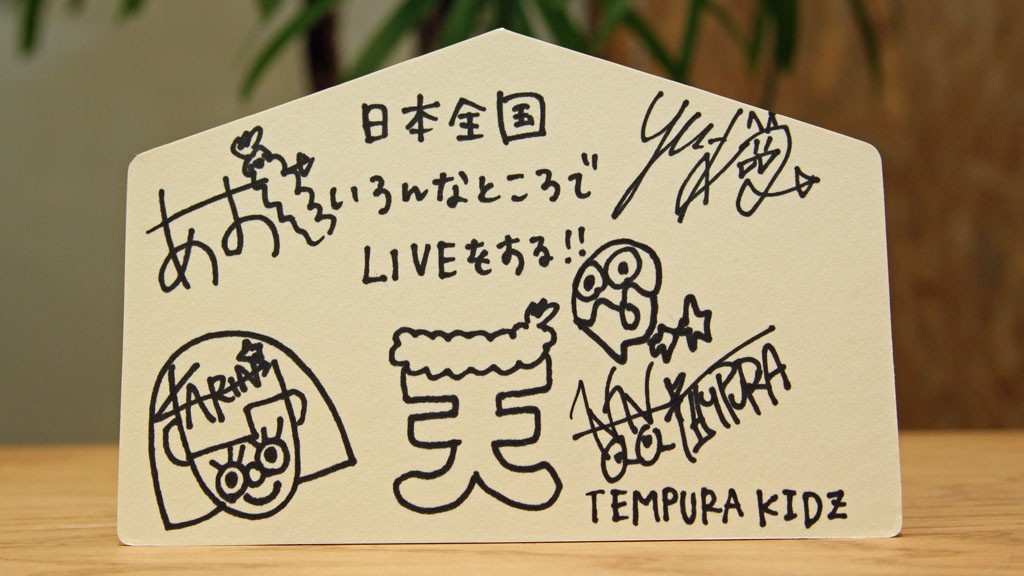 日本全国
いろんなところで
LIVEをする!!
あおい
KARIN
天
TEMPURA
TEMPURA KIDZ